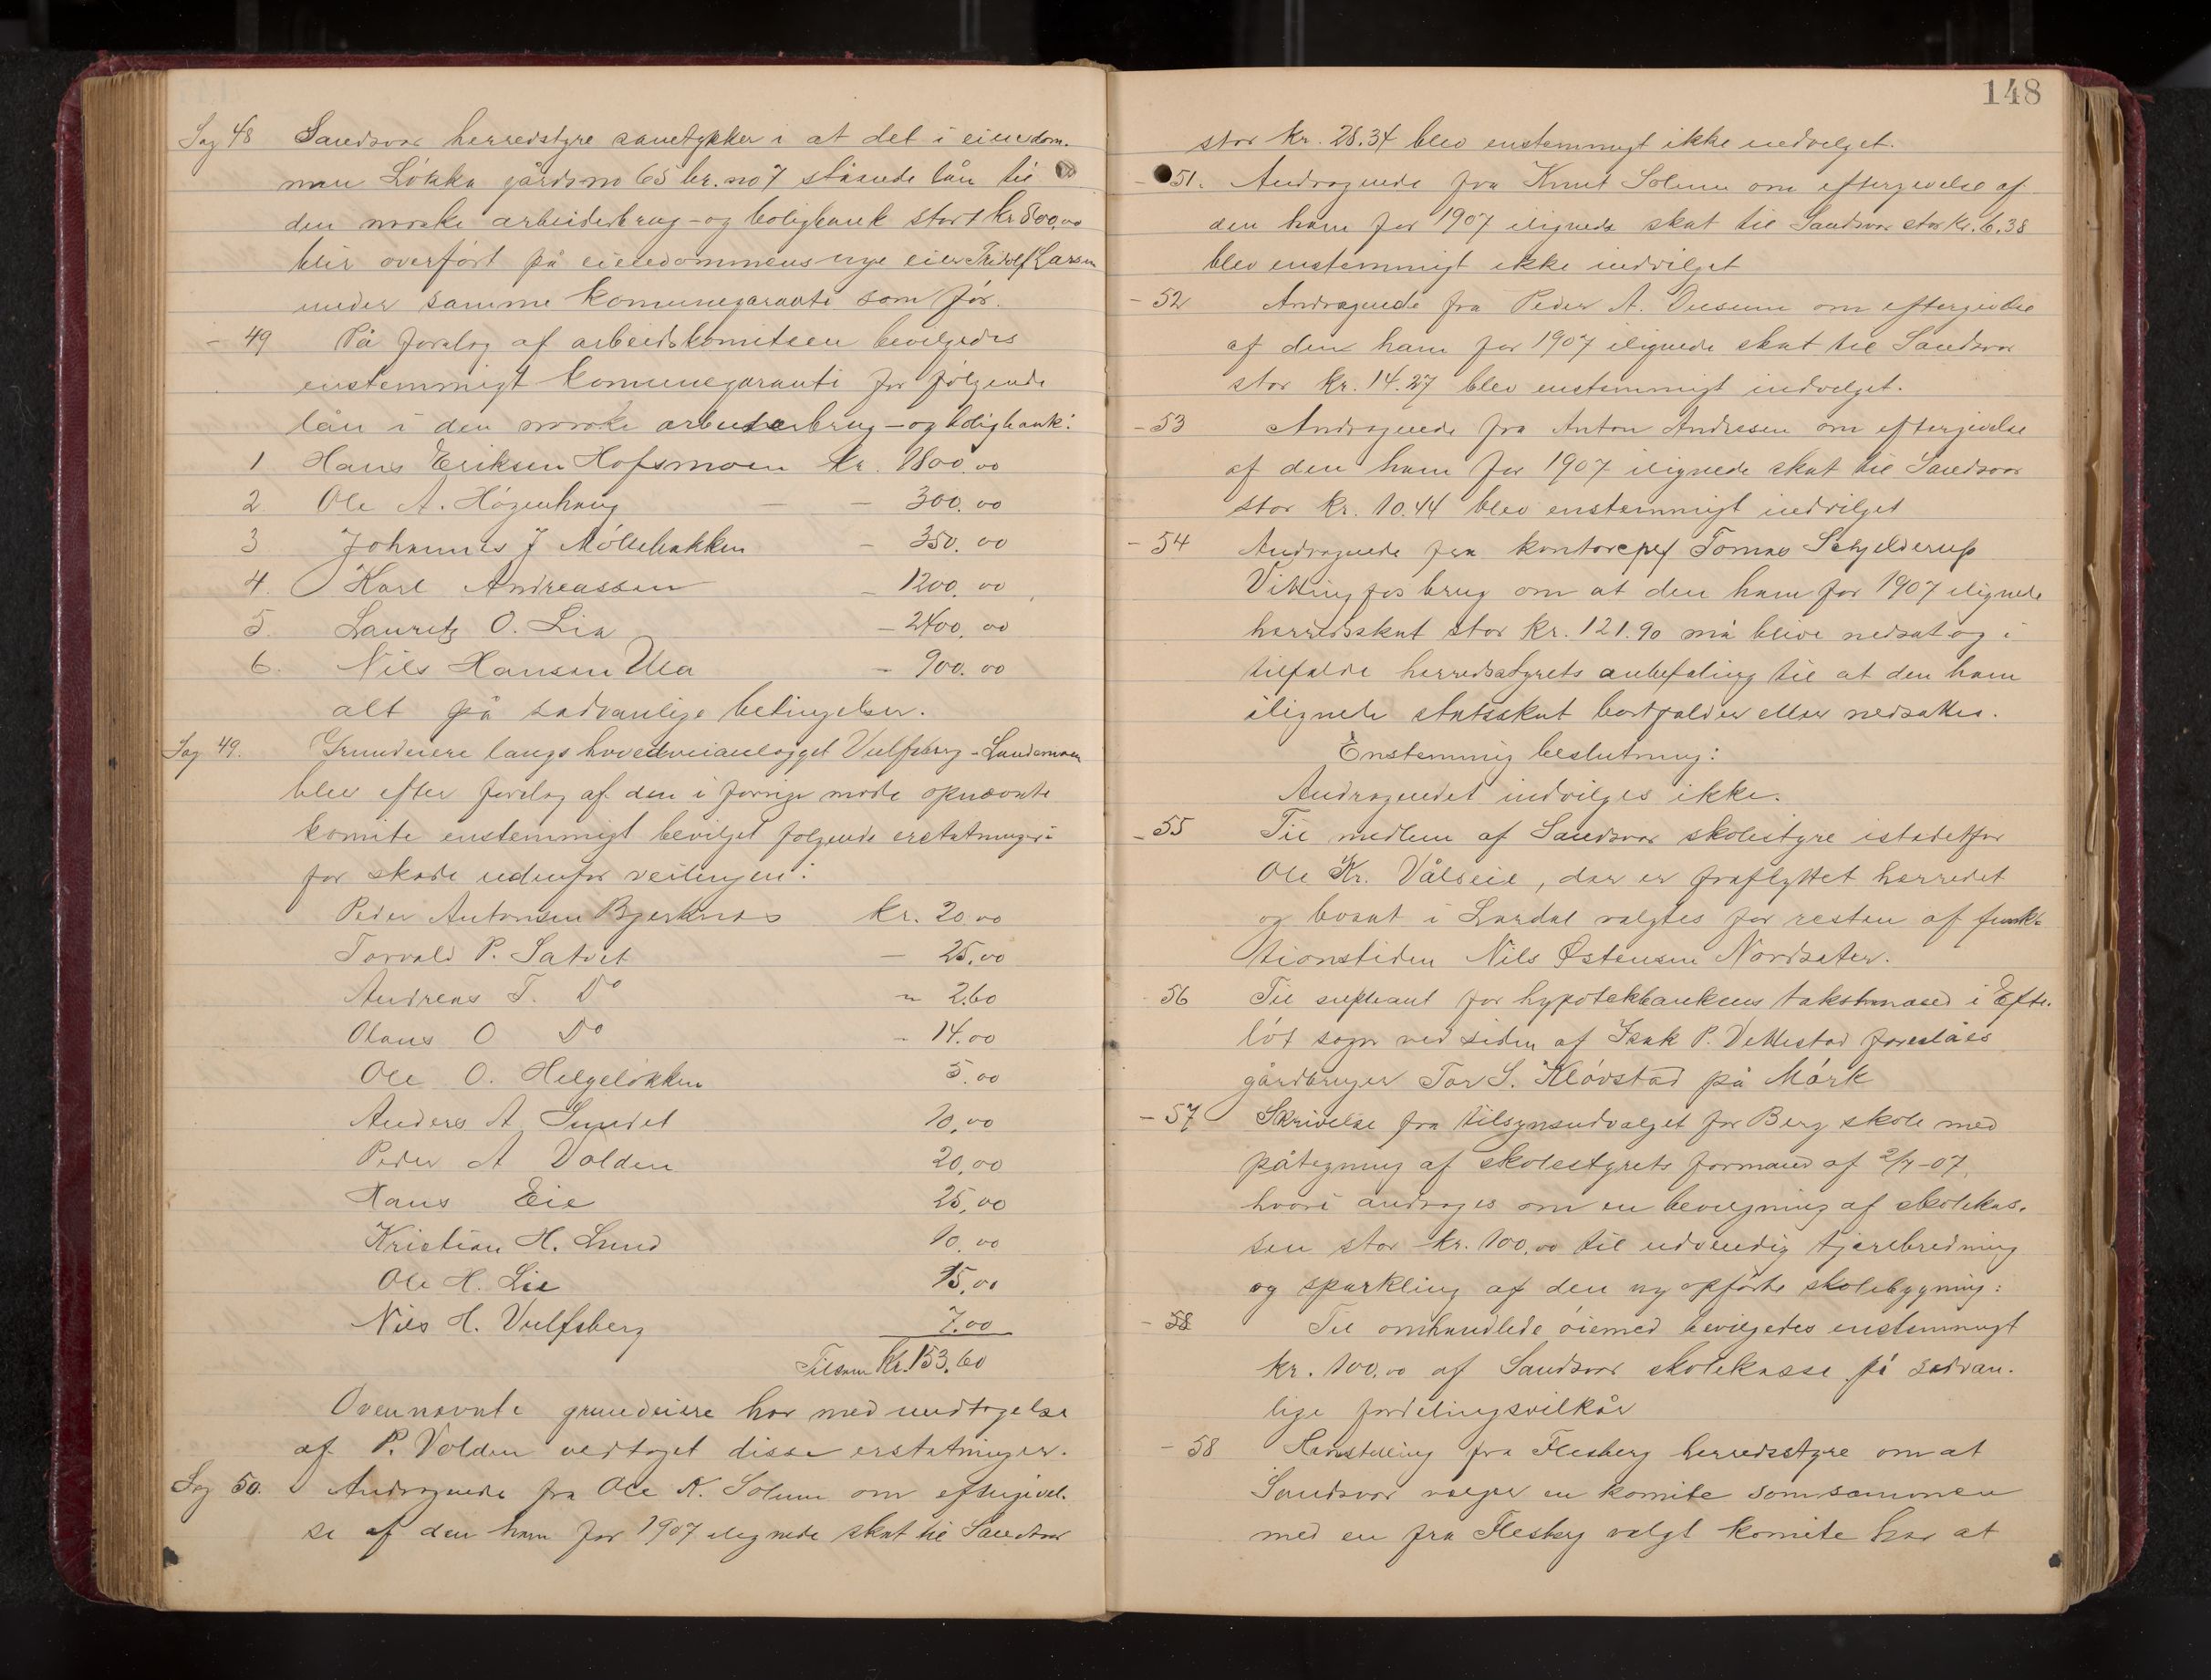 Sag 48 Sandsvær herredstyre samtykker i at det i eiendom-
men Løkka gårdsno 65 br. no 7 stående lån til
den norske arbeiderbrug- og boligbank stort kr 800,00
blir overført på eiendommens nye eier Fridolf Larsen
under samme kommunegaranti som før.
- 49 På forslag af arbeidskomiteen bevilgedes
enstemmigt kommunegaranti for følgende
lån i den norske arbeiderbrug- og boligbank:
1 Hans Eriksen Hofsmoen kr. 1800.00
2 Ole A. Høgenhaug — - 300.00
3 Johannes J Møllebakken - 350.00
4. Karl Andreassen - 1200.00
5. Lauritz O. Lia - 2400.00
6. Nils Hansen Ula - 900.00
alt på sædvanlige betingelser.
Sag 49. Grundeiere langs hovedveianlægget Vulfsberg - Lundemoen
blev efter forslag af den i forrige møde opnævnte
komite enstemmigt bevilget følgende erstatninger
for skade udenfor veilinjen:
Peder Antonsen Bjerknæs kr. 20.00
Torvald P. Satvet — 25.00
Andreas T. Do " 2.60
Olaus O Do - 14.00
Ole O. Helgeløkken 5.00
Anders A. Sundet 10,00
Peder A Volden 20,00
Hans Eie 25,00
Kristian H. Lund 10.00
Ole H. Lie 15,00
Nils H. Vulfsberg 7.00
Tilsam Kr. 153.60
Ovennævnte grundeiere har med undtagelse
af P. Volden vedtaget disse erstatninger.
Sag 50. Andragende fra Ole K. Solum om eftergivel-
se af den ham for 1907 ilignede skat til Sandsvær
148
stor kr. 28.34 blev enstemmigt ikke indvilget.
- 51. Andragende fra Knut Solum om eftergivelse af
den ham for 1907 ilignede skat til Sandsvær stor kr. 6.38
blev enstemmigt ikke indvilget
- 52 Andragende fra Peder A. om eftergivelse
af den ham for 1907 ilignede skat til Sandsvær
stor kr. 14.27 blev enstemmigt indvilget.
- 53 Andragende fra Anton Andresen om eftergivelse
af den ham for 1907 ilignede skat til Sandsvær
stor kr. 10.44 blev enstemmigt indvilget
- 54 Andragende fra kontorchef Tomas Schjelderup
Vittingfos brug om at den ham for 1907 ilignede
herredsskat stor kr. 121.90 må blive nedsat og i
tilfælde herredsstyrets anbefaling til at den ham
ilignede statsskat bortfalder eller nedsættes.
Enstemmig beslutning:
Andragendet indvilges ikke.
- 55 Til medlem af Sandsvær skolestyre istedetfor
Ole Kr. Vålseie, der er fraflyttet herredet
og bosat i Lardal valgtes for resten af funk-
tionstiden Nils Østensen Nordsæter.
- 56 Til supleant for hypotekbankens takstmænd i Efte-
løt sogn ved siden af Isak P. Vettestad foreslåes
gårdbruger Tor S. Kløvstad på Mørk
- 57 Skrivelse fra tilsynsudvalget for Berg skole med
påtegning af skolestyrets formand af 2/7-07,
hvori andrages om en bevilgning af skolekas-
sen stor kr. 100,00 til udvendig tjærebredning
og sparkling af den ny opførte skolebygning:
- 58 Til omhandlede øiemed bevilgedes enstemmigt
kr. 100,00 af Sandsvær skolekasse på sædvan-
lige fordelingsvilkår
- 58 Henstilling fra Flesberg herredsstyre om at
Sandsvær vælger en komite som sammen
med en fra Flesberg valgt komite har at